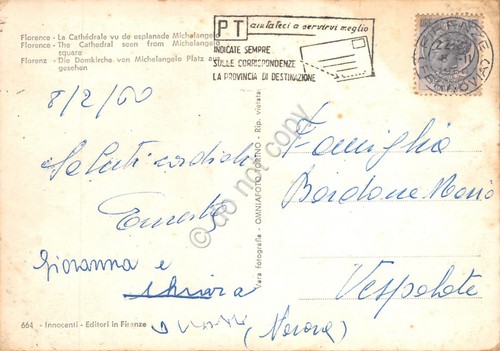 Florence - La Cathédrale vu de esplanade Michelangelo
Florence - The Cathedral seen from Michelangelo
square
Florenz - Die Domkirche von Michelangelo Platz aus
gesehen
PT aiutateci a servirvi meglio
INDICATE SEMPRE
SULLE CORRISPONDENZE
LA PROVINCIA DI DESTINAZIONE
FIRENZE
8/2/60
Saluti cordiali
Ernesto
Giovanna e
Chiara
Famiglia
Bordone Mario
Vespolate
(Novara)
Vera fotografia - OMNIAFOTO TORINO - Rip. vietata
664 - Innocenti - Editori in Firenze
do not copy